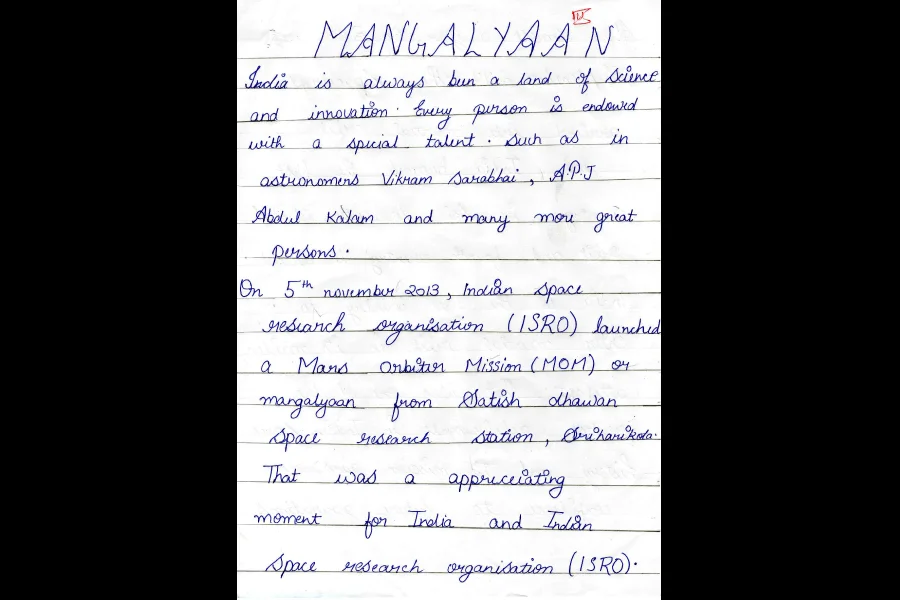 MANGALYAAN
India is always been a land of science
and innovation. Every person is endowed
with a special talent. Such as in
astronomers Vikram Sarabhai, A.P.J
Abdul Kalam and many more great
persons.
On 5th november 2013, Indian Space
research organisation (ISRO) launched
a Mars Orbiter Mission (MOM) or
mangalyaan from Satish dhawan
space research station, Sriharikota.
That was a appreciating
moment for India and Indian
Space research organisation (ISRO).